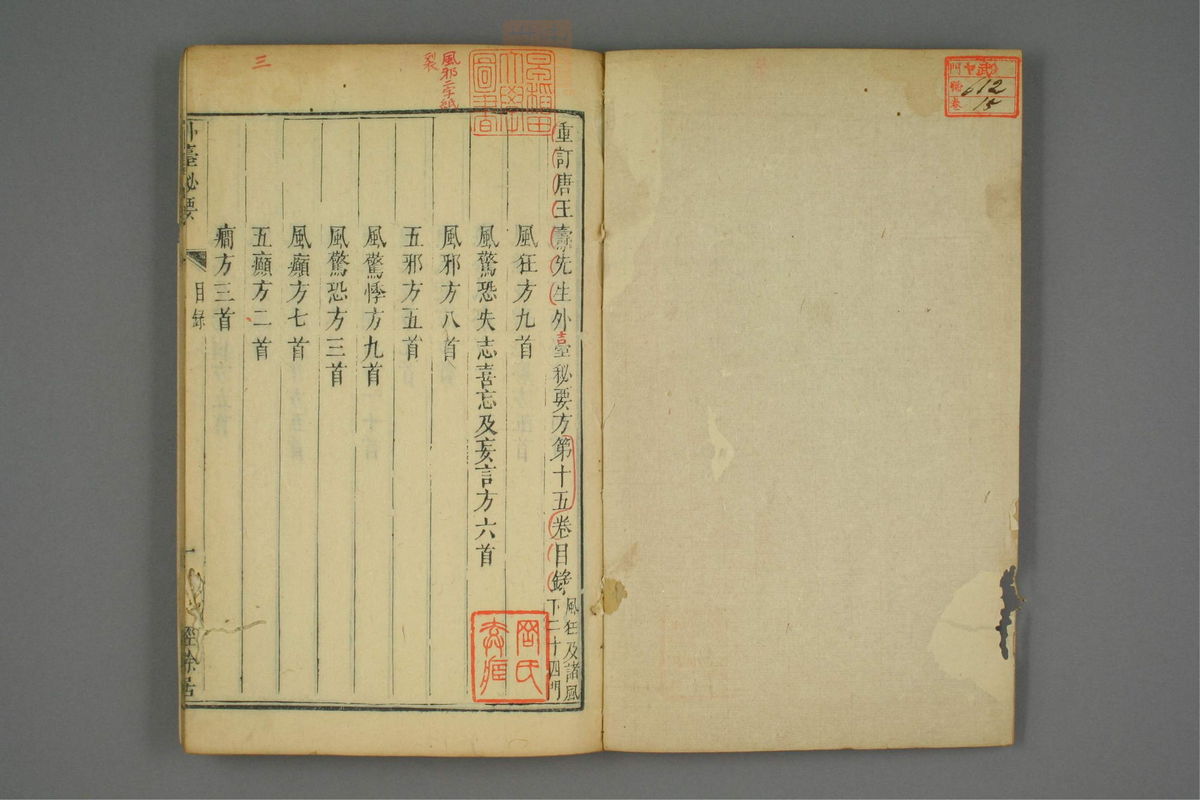 重訂唐王燾先生外臺秘要方第十五卷目錄
風狂及諸風
下二十四門
風狂方九首
風驚恐失志喜忘及妄言方六首
風邪方八首
五邪方五首
風驚悸方九首
風驚恐方三首
風癲方七首
五癲方二首
癇方三首
外臺秘要
目錄
一
經餘居
三
早稻田大學圖書
612
15